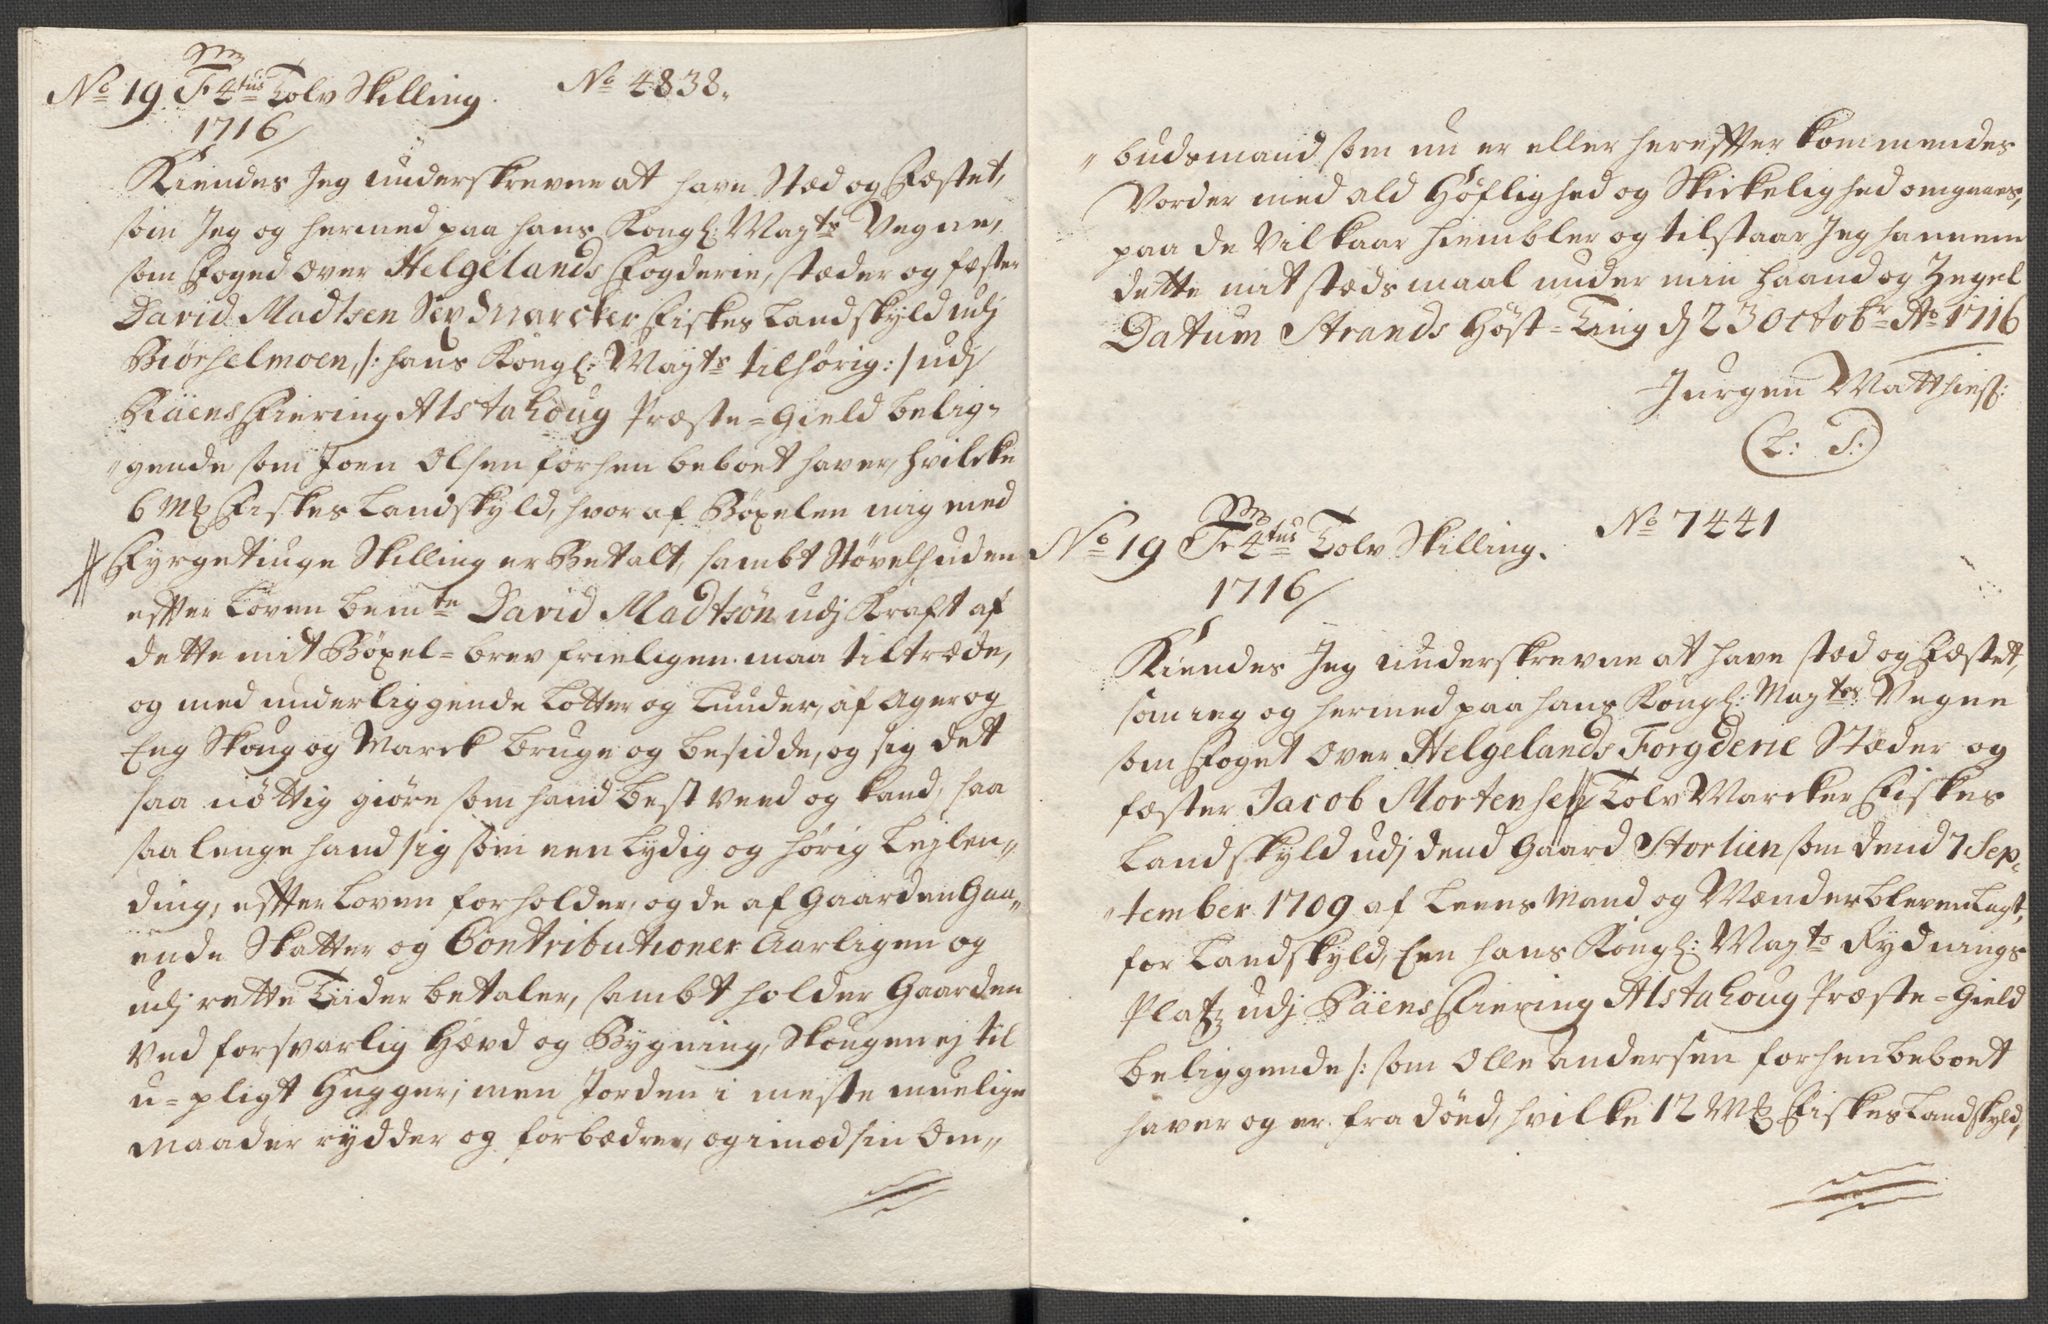 No 19 F 4tus Tolv Skilling. No 4838.
1716/
Kiendes Jeg underskrevne at have Stæd og Fæstet,
som Jeg og hermed paa hans Kongl: Maÿts Vegne,
som Foged over Helgelands Fogderie, stæder og fæster
David Madtsen Sex Marcker Fiskes Landskyld udj
Biørhelmoen, /: hans Kongl: Maÿts tilhørig :/ udj
Fiering Alstahoug Præste-Gield belig-
gende som Joen Olsen forhen beboet haver, hvilcke
6 Mk Fiskes Landskyld, hvor af Böxelen mig med
Fyrgetiuge Skilling er Betalt, sambt Støvelhuden
effter Loven bemte David Madtsøn udj Kraft af
dette mit Böxel-brev frieligen maa tiltræde,
og med underliggende Lotter og Lunder, af Ager og
Eng Skoug og Marck bruge og besidde, og sig det
saa nöttig giøre som hand best veed og kand, saa
saa lenge hand sig som een Lydig og hørig Lejlen-
ding, effter Loven forholder, og de af Gaarden Gaa-
ende Skatter og Contributioner Aarligen og
udj rette Tiider betaler, sambt holder Gaarden
ved forsvarlig Hævd og Bygning, Skougen ej til
u-pligt Hugger, men Jorden i meste muelige
Maader rydder og forbædrer, og imod sin Om-
budsmand som nu er eller hereffter kommendes
Vorder med ald Höflighed og Skickelighed omgaaes,
paa de Vilkaar hiembler og tilstaar Jeg hannem
dette mit stædsmaal under min Haand og Zegel
Datum Strands Höst-Ting d 23 Octobr Ao 1716
Jurgen Matthiess:
L: S:
No 19 F 4tus Tolv Skilling. No 7441
1716/
Kiendes Jeg underskrevne at have stæd og Fæstet,
som ieg og hermed paa hans Kongl: Maÿts Vegne
som Foget Over Helgelands Forgderie Stæder og
fæster Jacob Mortensen Tolv Marcker Fiskes
Landskyld udj dend Gaard Storlien som dend 7 Sep-
tember 1709 af Leensmand og Mænder bleven Lagt,
for Landskyld, Een hans Kongl: Maÿts Rydnings
Platz udj Fiering Alstahoug Præste-Gield
beliggende /: som Olle Andersen forhen beboet
haver og er fra död, hvilke 12 Mk Fiskes Landskyld,